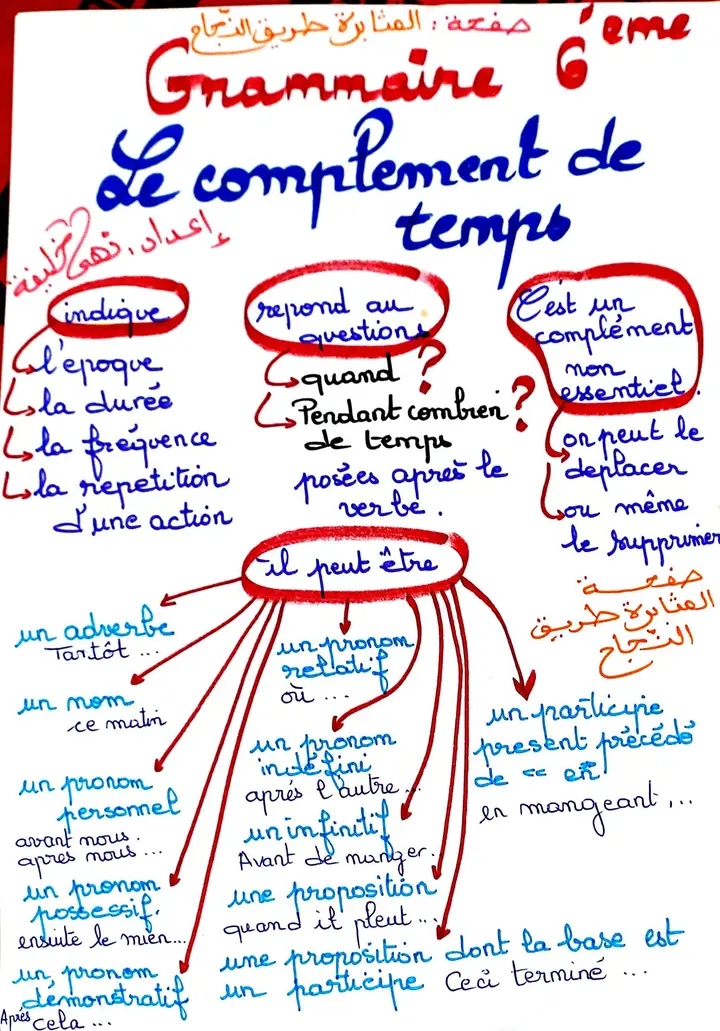 صفحة : المثابرة طريق النجاح
Grammaire 6ème
Le complement de
temps
إعداد. نهى خليفة
indique
l'epoque
la durée
la fréquence
la repetition
d'une action
repond au
questions
quand ?
Pendant combien ?
de temps
posées après le
verbe.
C'est un
complément
non
essentiel.
on peut le
deplacer
ou même
le supprimer
صفحة
المثابرة طريق
النجاح
il peut être
un adverbe
Tantôt ...
un nom
ce matin
un pronom
personnel
avant nous.
après nous ...
un pronom
possessif.
ensuite le mien...
un pronom
démonstratif
Après cela ...
un pronom
relatif
où ...
un pronom
indéfini
après l'autre...
un infinitif
Avant de manger.
une proposition
quand il pleut...
une proposition dont la base est
un participe Ceci terminé ...
un participe
present précédé
de "en"
en mangeant, ...